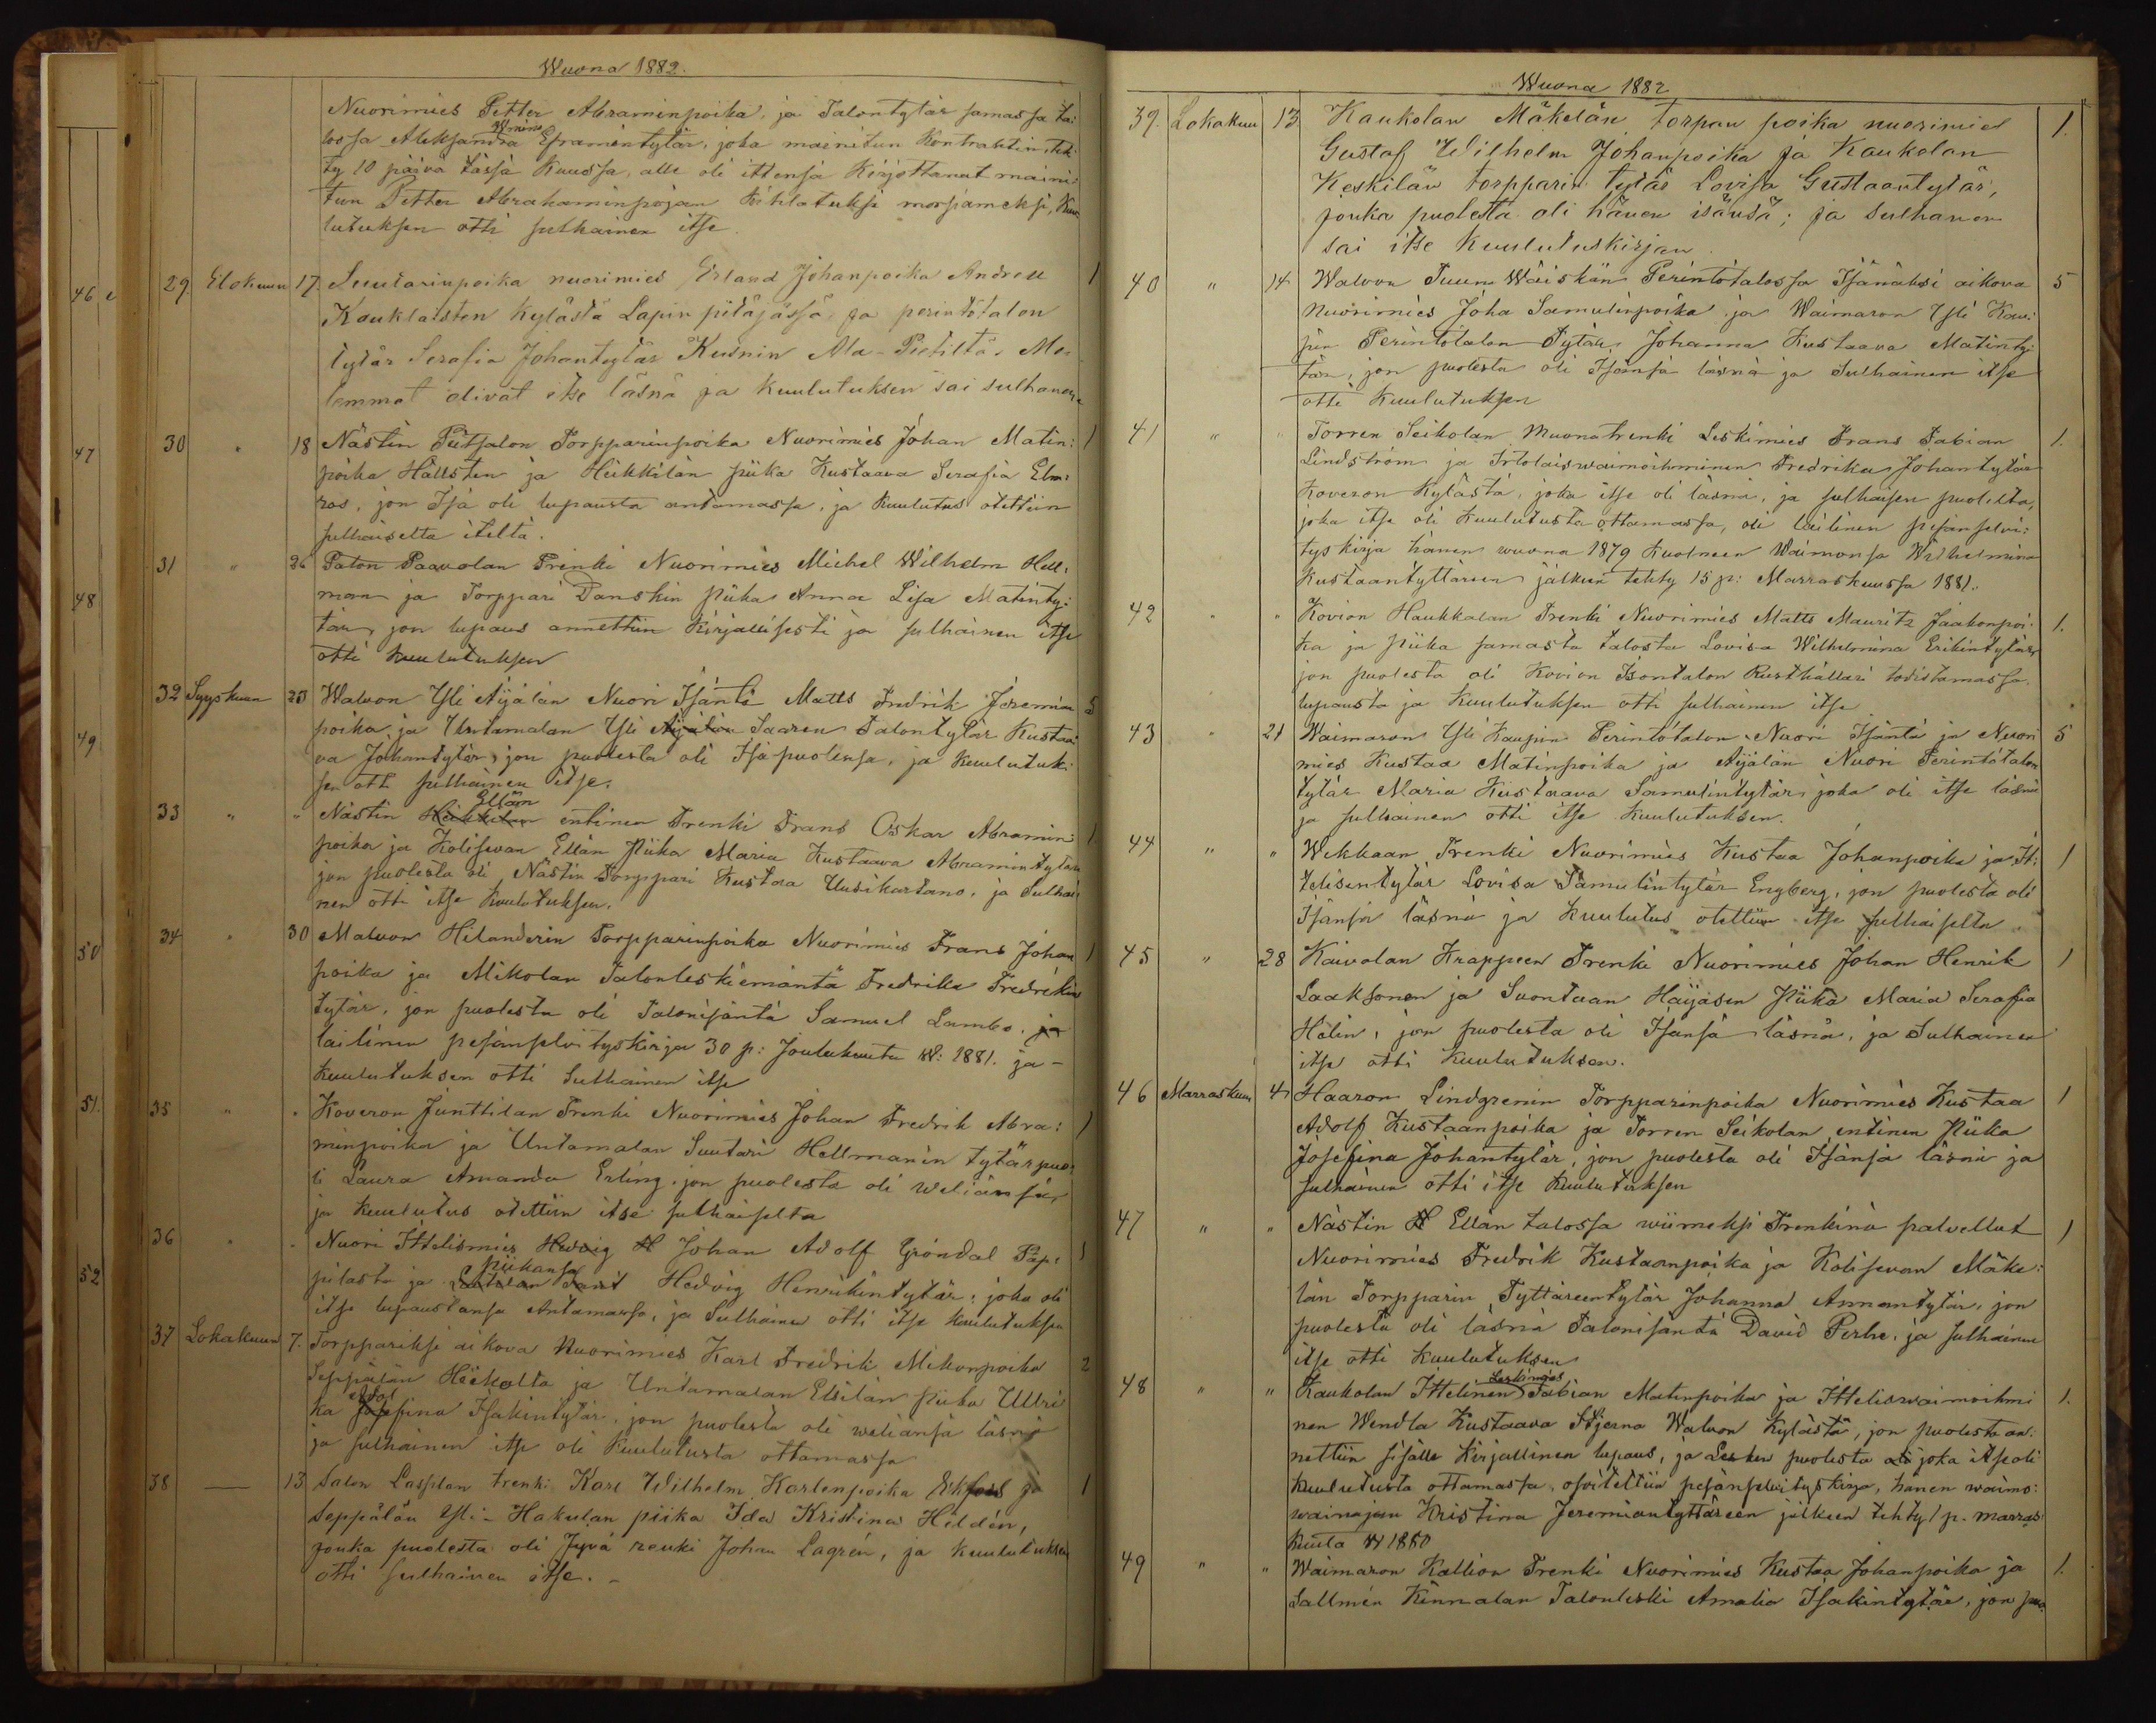 Wuonna 1882.
Nuorimies Petter Abraminpoika, ja Talontytär samassa ta-
lossa Aleksandra Wraina Eframintytär, joka mainitun Kontrahtin teh-
ty 10 päivä tässä Kuussa, alle oli ittensä Kirjottanut maini-
tun Petter Abrahaminpojan kihlatuksi morsiameksi, Kuu-
lutuksen otti sulhainen itse.
46
29. Elokuun 17. Suutarinpoika nuorimies Erland Johanpoika Andrell 1
Kauklaisten kylästä Lapin pitäjässä ja perintötalon
tytär Serafia Johantytär Kusnin Ala-Pietiltä. Mo-
lemmat olivat itse läsnä ja Kuulutuksen sai sulhanen
47
30 " 18 Nästin Pietsalon Torpparinpoika Nuorimies Johan Matin: 1
poika Hällsten ja Heikkilän piika Kustaava Serafia Elm:
ros, jon Isä oli lupausta antamassa, ja Kuulutus otettiin
sulhaiselta iteltä.
31 " 26 Palon Paavolan Trenki Nuorimies Michel Wilhelm Hell-
man ja Torppari Danskin Piika Anna Lisa Matinty-
tär, jon lupaus annettiin Kirjallisesti ja sulhainen itse
otti Kuulutuksen
48
32 Syyskuun 23 Walvon Yli Äijälän Nuori Isäntä Matts Fredrik Jeremia 5
poika, ja Untamalan Yli Äijälän Saaren Talontytär Kustaa-
va Johantytär, jon puolesta oli Isäpuolensa, ja Kuulutuk-
sen otti sulhainen itse.
49
33 " " Nästin Heikkilän Ellän entinen Trenki Frans Oskar Abramin: 1
poika ja Kolisevan Ellän Piika Maria Kustaava Abramintytär
jon puolesta oli Nästin Torppari Kustaa Uusikartano, ja Sulhai-
nen otti itse Kuulutuksen.
34 " 30 Malvon Hilanderin Torpparinpoika Nuorimies Frans Johan 1
poika ja Mikolan Talonleskiemäntä Fredrika Fredrikin
tytär, jon puolesta oli Talonisäntä Samuel Lambo, ja
lailinen pesänselvityskirja 30 p: Joulukuuta W: 1881. ja -
Kuulutuksen otti Sulhainen itse
50
35 " " Koveron Junttilan Trenki Nuorimies Johan Fredrik Abra: 1
minpoika ja Untamalan Suutari Hellmanin tytärpuo-
li Laura Amanda Erling, jon puolesta oli weliänsä
ja Kuulutus otettiin itse sulhaiselta
51.
36 " " Nuori Ittelismies Hedvig H Johan Adolf Gröndal Pap- 1
pilasta ja piikansa Hedvig Henrikintytär, joka oli
itse lupaustansa Antamassa, ja Sulhainen otti itse Kuulutuksen
52
37 Lokakuun 7. Torppariksi aikova Nuorimies Karl Fredrik Mikonpoika 2
Seppälän Heikolta ja Untamalan Elsilän Piika Ullri
ka Adol Josefina Isakintytär, jon puolesta oli weliänsä läsnä
ja sulhainen itse oli Kuulutusta ottamassa
38 — 13 Salon Lassilan trenki Karl Wilhelm Karlenpoika Ekfors ja 1
Seppälän Yli-Hakulan piika Ida Kristina Hildén,
jonka puolesta oli Jyvä renki Johan Lagrén, ja Kuulutuksen
otti sulhainen itse. -
Wuonna 1882
39. Lokakuu 13. Kaukolan Mäkelän torpan poika nuorimies 1.
Gustaf Wilhelm Johanpoika ja Kaukolan
Keskilän torpparin tytär Lovisa Gustaantytär,
jonka puolesta oli hänen isänsä; ja sulhanen
sai itse Kuulutuskirjan.
40 " 14 Walvon Tuuna Wäiskän Perintötalossa Isännäksi aikova 5
Nuorimies Joha Samulinpoika ja Waimaron Yli Kau-
pin Perintötalon Tytär Johanna Kustaava Matinty-
tär, jon puolesta oli Isänsä läsnä ja Sulhainen itse
otti Kuulutuksen
41 " " Torren Seikolan Muonatrenki Leskimies Frans Fabian 1.
Lindström ja Irtolaiswaimoihminen Fredrika Johantytär
Koveron Kylästä, joka itse oli läsnä, ja sulhaisen puolesta,
joka itse oli Kuulutusta ottamassa, oli lailinen pesänselvi:
tyskirja hänen wuona 1879 Kuolneen Waimonsa Wilhelmina
Kustaantyttären jälkeen tehty 15 p: Marraskuussa 1881.
42 " " Kovion Haukkalan Trenki Nuorimies Matts Mauritz Jaakonpoi- 1.
ka ja Piika samasta talosta Lovisa Wilhelmina Erikintytär
jon puolesta oli Kovion Isontalon Rusthållari todistamassa
lupausta ja Kuulutuksen otti sulhainen itse
43 " 21 Waimaron Yli Kaupin Perintötalon Nuori Isäntä ja Nuori 5
mies Kustaa Matinpoika ja Äijälän Nuori Perintötalon
tytär Maria Kustaava Samulintytär, joka oli itse läsnä
ja sulhainen otti itse Kuulutuksen.
44 " " Wekkaan Trenki Nuorimies Kustaa Johanpoika ja It: 1
telisentytär Lovisa Samulintytär Engberg, jon puolesta oli
Isänsä läsnä ja Kuulutus otettiin itse sulhaiselta.
45 " 28 Kaivolan Krappeen Trenki Nuorimies Johan Henrik 1
Laaksonen ja Suontaan Häijäsen Piika Maria Serafia
Helin, jon puolesta oli Isänsä läsnä, ja Sulhainen
itse otti Kuulutuksen.
46 Marraskuu 4 Haaron Lindgrenin Torpparinpoika Nuorimies Kustaa 1
Adolf Kustaanpoika ja Torren Seikolan entinen Piika
Josefina Johantytär, jon puolesta oli Isänsä läsnä ja
sulhainen otti itse Kuulutuksen
47 " " Nästin H Ellän talossa wiimeksi Trenkinä palvellut 1
Nuorimies Fredrik Kustaanpoika ja Kolisevan Mäke:
län Torpparin Tyttärentytär Johanna Annantytär, jon
puolesta oli läsnä Talonisäntä David Perhe, ja sulhainen
itse otti Kuulutuksen
48 " " Kaukolan Ittelinen Leskimies Fabian Matinpoika ja Itteliswaimoihmi 1.
nen Wendla Kustaava Stjerna Walvon Kylästä, jon puolesta an:
nettiin sisälle Kirjallinen lupaus, ja Lesken puolesta oli joka itse oli
Kuulutusta ottamassa, osoitettiin pesänselvityskirja, hänen waimo:
wainajan Kristina Jeremiantyttären jälkeen tehty 1 p. marras:
kuuta W 1880
49 " " Waimaron Kallion Trenki Nuorimies Kustaa Johanpoika ja 1.
Sallmén Kinnalan Talonleski Amalia Isakintytär, jon puo